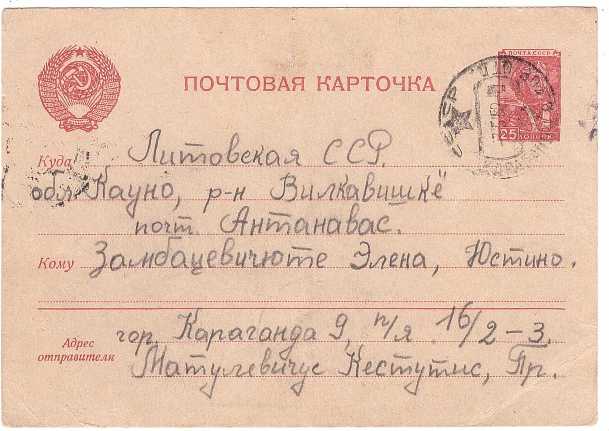 ПОЧТОВАЯ КАРТОЧКА
ПОЧТА СССР
25 КОПЕЕК
Куда Литовская ССР.
обл. Кауно, р-н Вилкавишкё
почт. Антанавас.
Кому Замбацевичюте Элена, Юстино.
Адрес отправителя
гор. Караганда 9, п/я 16/2-3.
Матулевичус Кестутис, Пр.